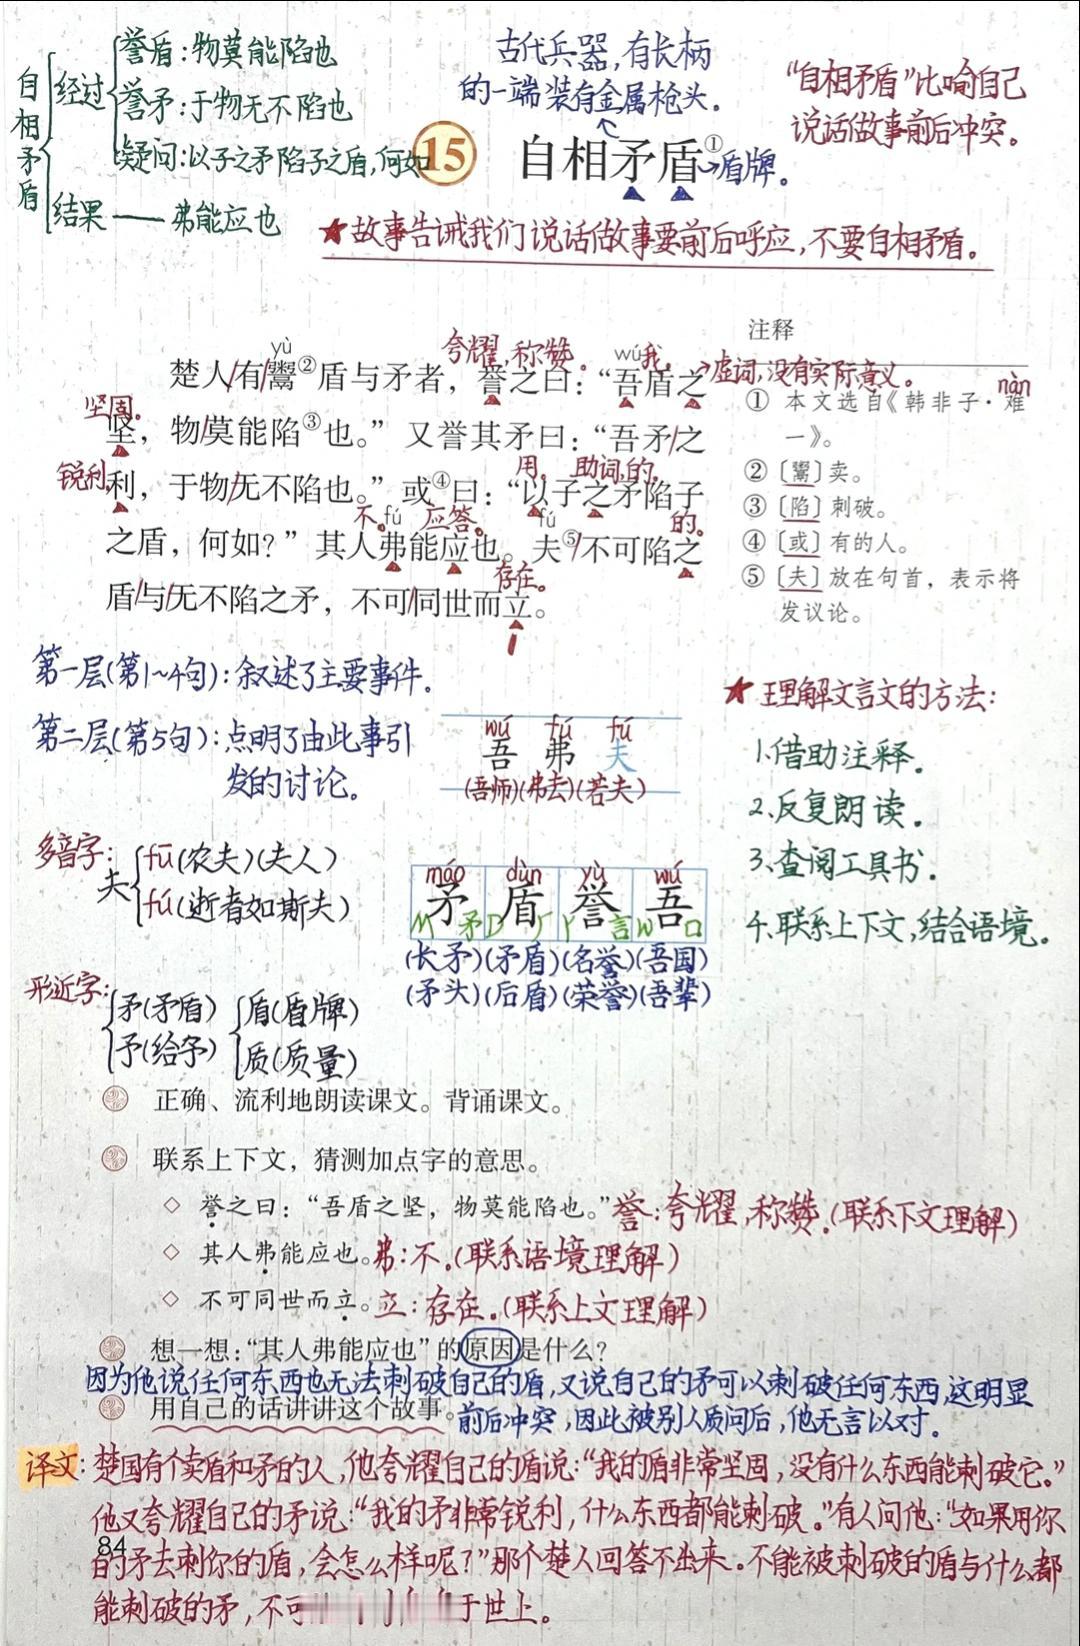 自相矛盾
经过
誉盾:物莫能陷也
誉矛:于物无不陷也
疑问:以子之矛陷子之盾,何如
结果——弗能应也
古代兵器,有长柄
的一端装有金属枪头。
“自相矛盾”比喻自己
说话做事前后冲突。
15 自相矛盾①
盾牌。
★故事告诫我们说话做事要前后呼应,不要自相矛盾。
yù
夸耀,称赞。
wú我。
虚词,没有实际意义。
楚人/有/鬻②盾与矛者,誉之曰:“吾盾之
坚固。
坚,物/莫能陷③也。” 又誉其矛曰:“吾矛/之
锐利。
用。 助词,的。
利,于物/无不陷也。” 或④曰:“以子之矛陷子
不。fú 应答。 fú 的。
之盾,何如?” 其人弗能应也。夫⑤/不可陷之
存在。
盾/与/无不陷之矛,不可/同世而立。
注释
nàn
① 本文选自《韩非子·难
一》。
② 〔鬻〕卖。
③ 〔陷〕刺破。
④ 〔或〕有的人。
⑤ 〔夫〕放在句首,表示将
发议论。
第一层(第1~4句):叙述了主要事件。
第二层(第5句):点明了由此事引
发的讨论。
wú fú fú
吾 弗 夫
(吾师)(弗去)(若夫)
★理解文言文的方法:
1.借助注释。
2.反复朗读。
3.查阅工具书。
4.联系上下文,结合语境。
多音字:
夫
fū(农夫)(夫人)
fú(逝者如斯夫)
máo dùn yù wú
矛 盾 誉 吾
M 矛 D 厂 Y 言 W 口
(长矛)(矛盾)(名誉)(吾国)
(矛头)(后盾)(荣誉)(吾辈)
形近字:
矛(矛盾)
予(给予)
盾(盾牌)
质(质量)
正确、流利地朗读课文。背诵课文。
联系上下文,猜测加点字的意思。
◇ 誉之曰:“吾盾之坚,物莫能陷也。”誉:夸耀,称赞。(联系下文理解)
◇ 其人弗能应也。弗:不。(联系语境理解)
◇ 不可同世而立。立:存在。(联系上文理解)
想一想:“其人弗能应也”的原因是什么?
因为他说任何东西也无法刺破自己的盾,又说自己的矛可以刺破任何东西,这明显
用自己的话讲讲这个故事。
前后冲突,因此被别人质问后,他无言以对。
译文:楚国有个卖盾和矛的人,他夸耀自己的盾说:“我的盾非常坚固,没有什么东西能刺破它。”
他又夸耀自己的矛说:“我的矛非常锐利,什么东西都能刺破。”有人问他:“如果用你
84
的矛去刺你的盾,会怎么样呢?”那个楚人回答不出来。不能被刺破的盾与什么都
能刺破的矛,不可于世上。